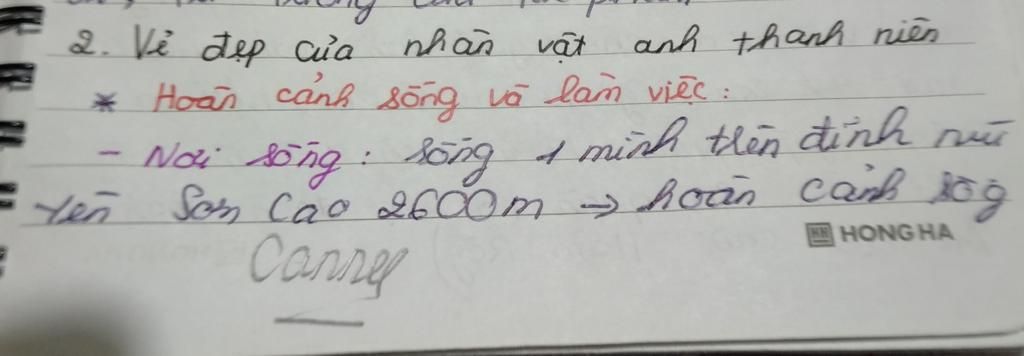 2. Vẻ đẹp của nhân vật anh thanh niên
* Hoàn cảnh sống và làm việc:
- Nơi sống: sống 1 mình trên đỉnh núi
Yên Sơn cao 2600m → hoàn cảnh sôg
HONG HA